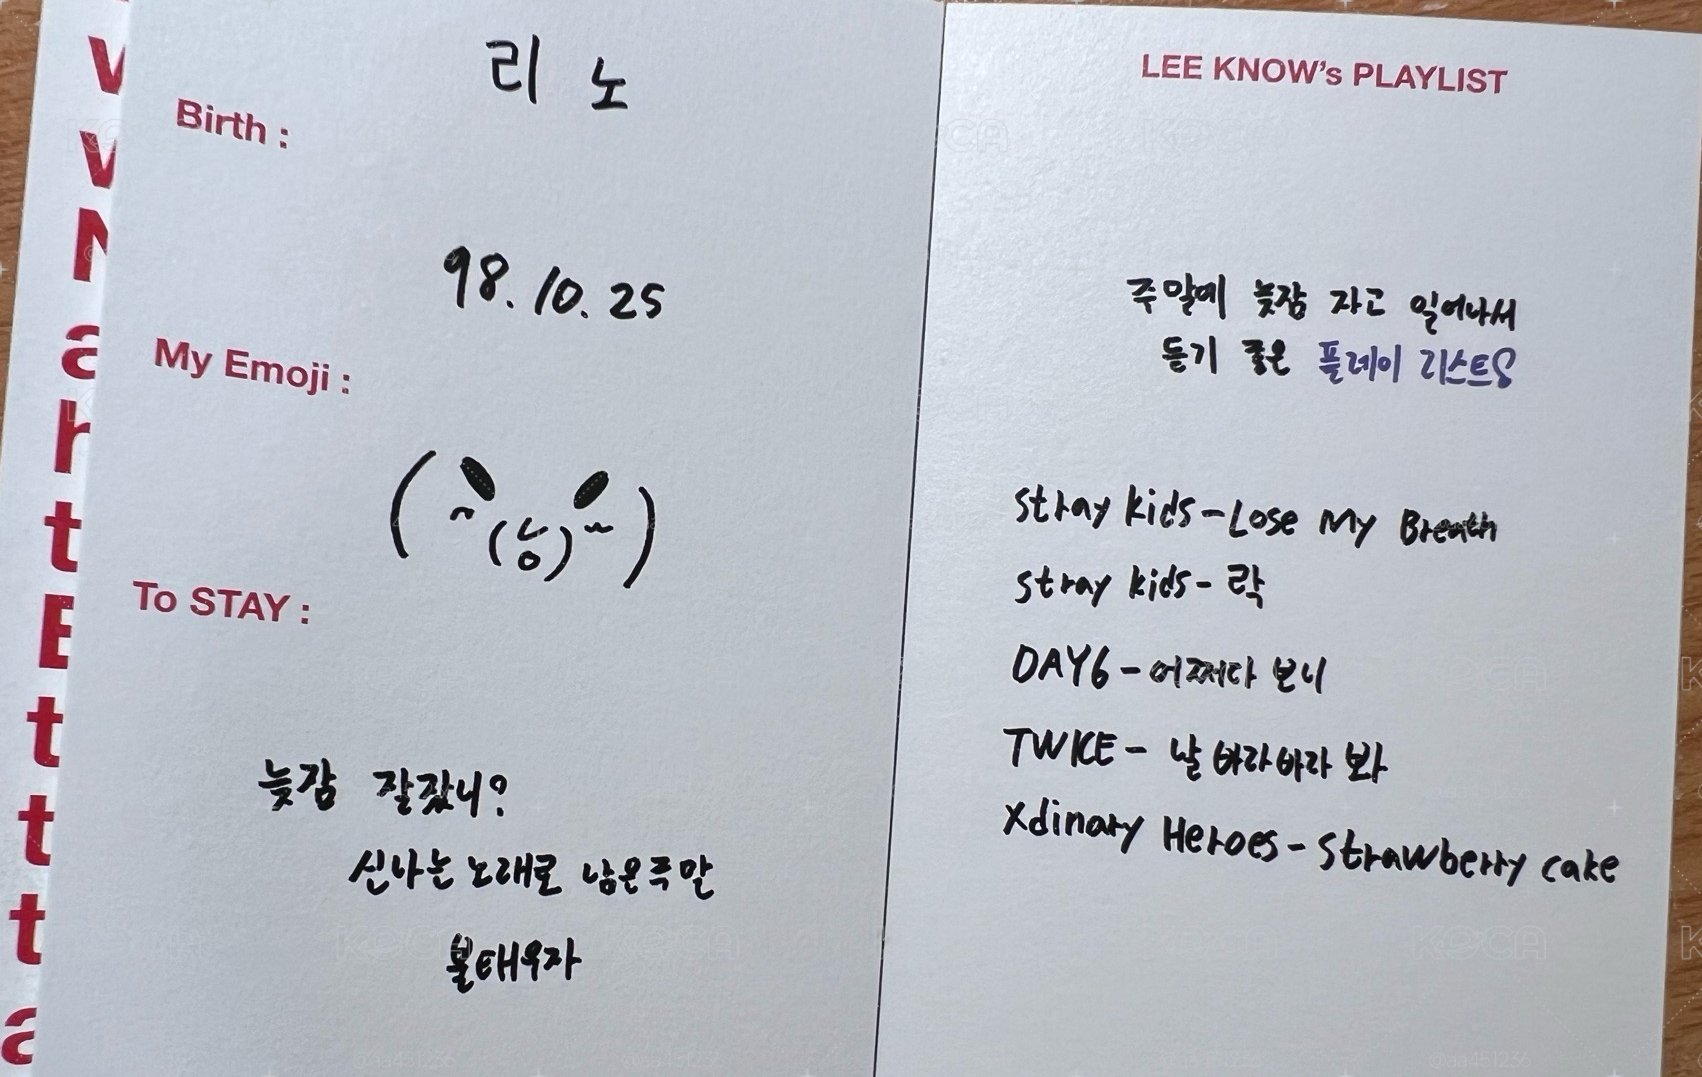 리노
Birth :
98.10.25
My Emoji :
( ~ (ㆁ) ~ )
To STAY :
늦잠 잘잤니?
신나는 노래로 남은주말
불태우자
LEE KNOW's PLAYLIST
주말에 늦잠 자고 일어나서
듣기 좋은 플레이 리스트
stray kids - Lose My Breath
stray kids - 락
DAY6 - 어쩌다 보니
TWICE - 날 바라바라 봐
Xdinary Heroes - Strawberry cake
KOCA
@aa451236